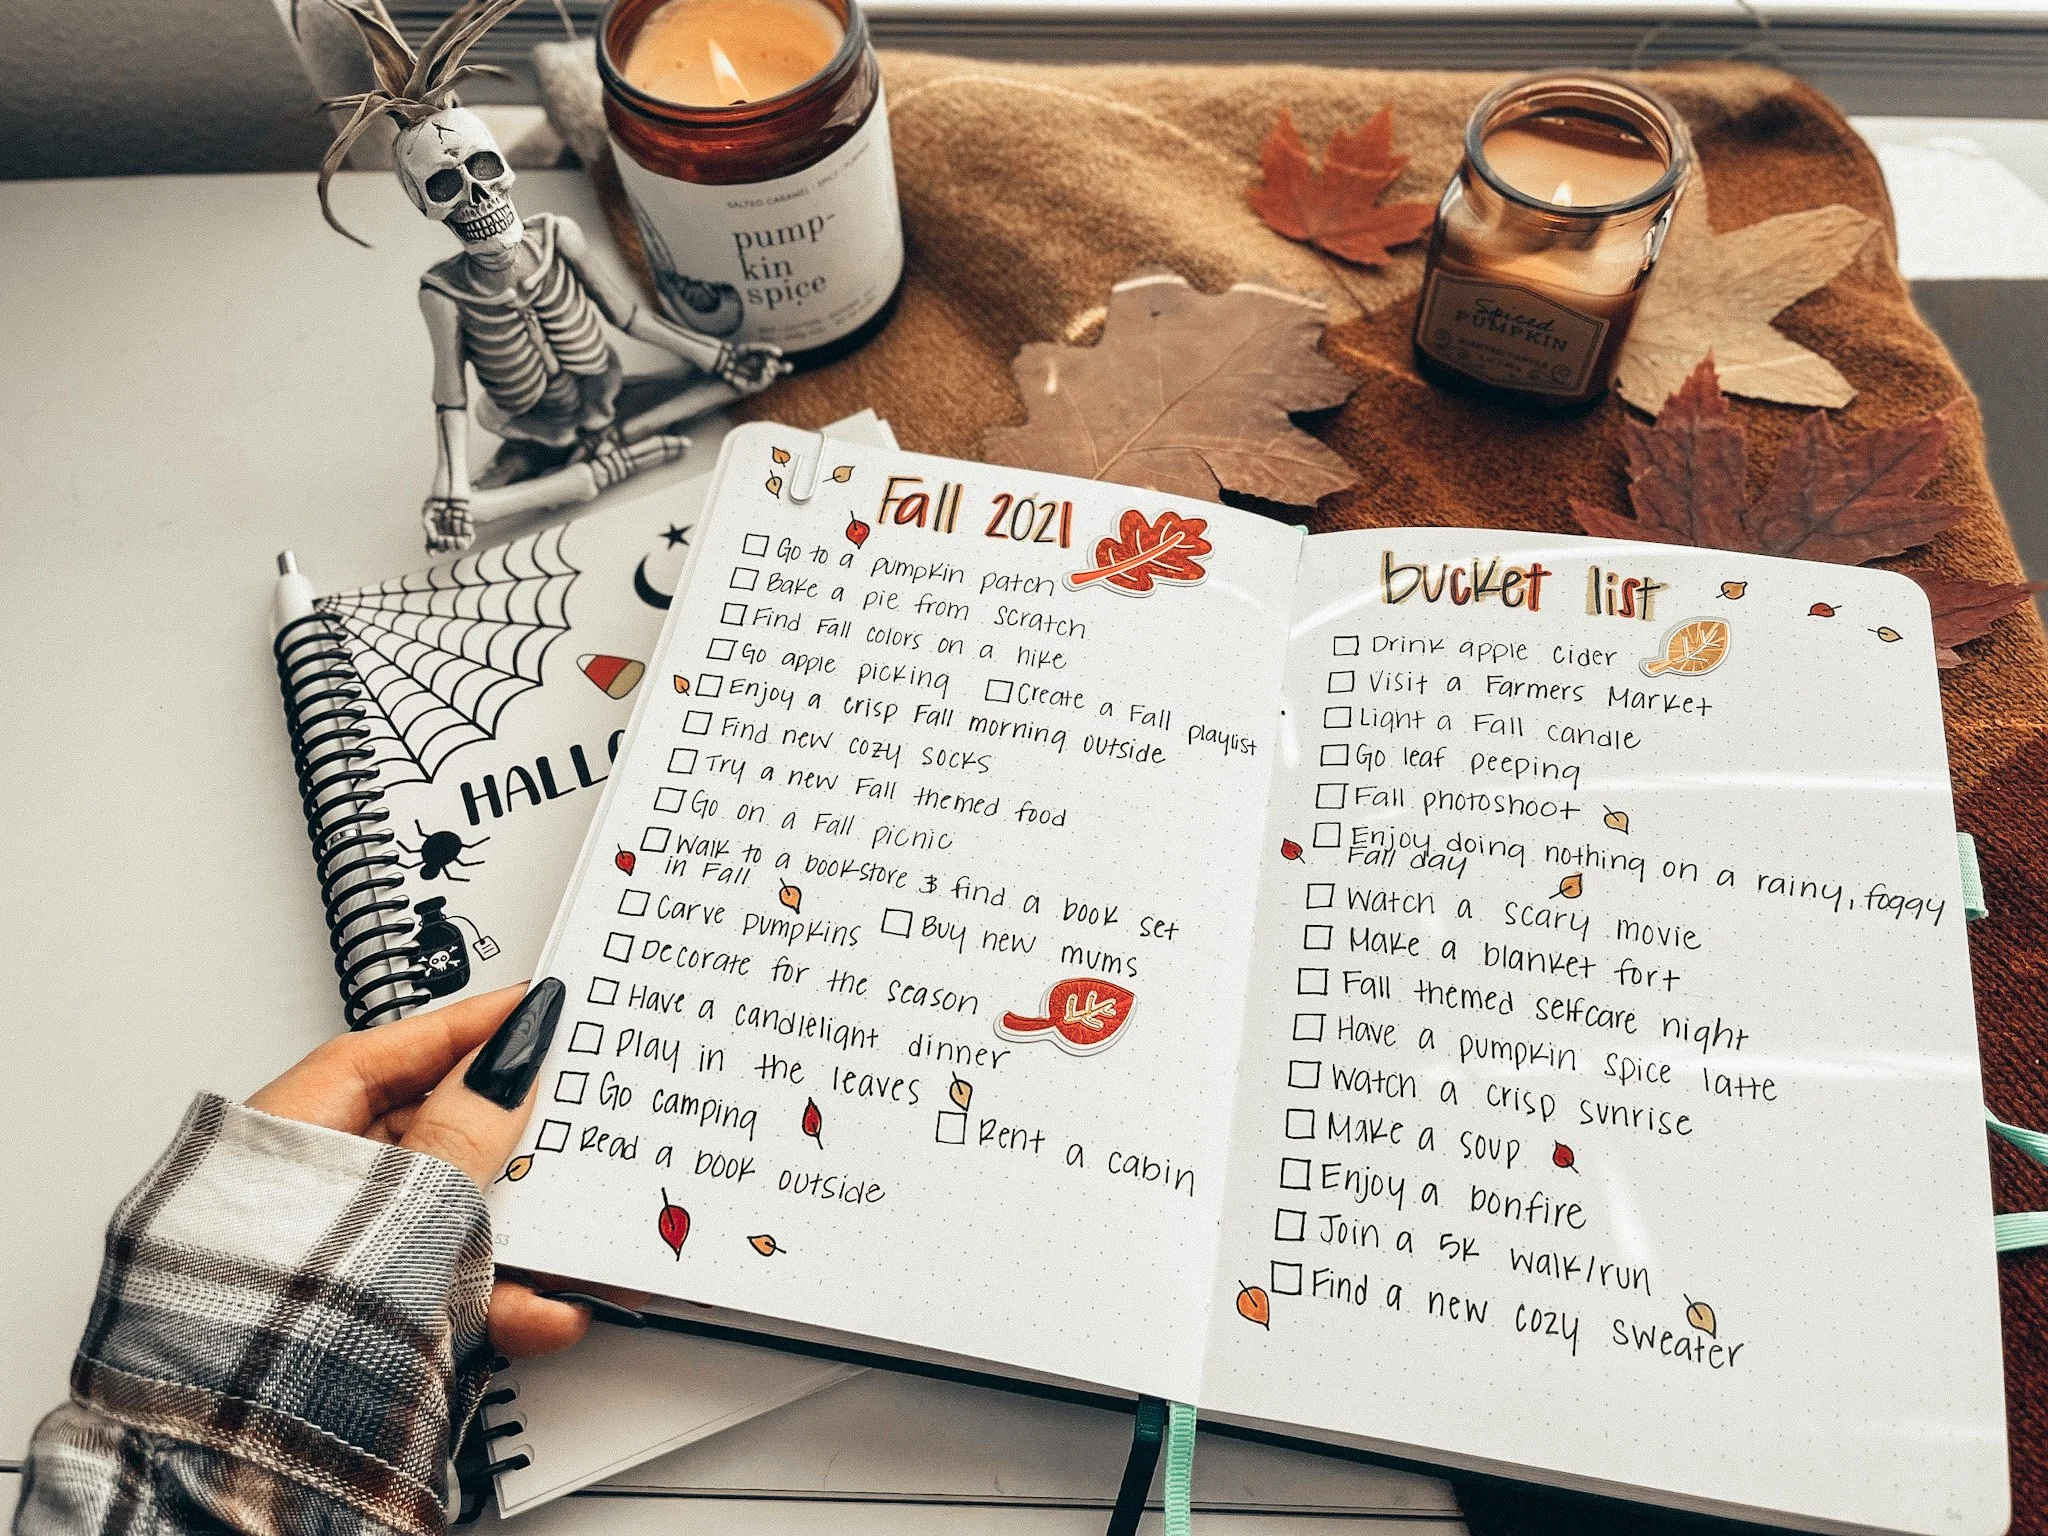 SALTED CARAMEL
pump-
kin
spice
Spiced
PUMPKIN
HALLO
Fall 2021
Go to a pumpkin patch
Bake a pie from scratch
Find Fall colors on a hike
Go apple picking
Create a Fall playlist
Enjoy a crisp Fall morning outside
Find new cozy socks
Try a new Fall themed food
Go on a Fall picnic
Walk to a bookstore & find a book set
in Fall
Carve pumpkins
Buy new mums
Decorate for the season
Have a candlelight dinner
Play in the leaves
Go camping
Rent a cabin
Read a book outside
53
bucket list
Drink apple cider
Visit a Farmers Market
Light a Fall candle
Go leaf peeping
Fall photoshoot
Enjoy doing nothing on a rainy, foggy
Fall day
Watch a scary movie
Make a blanket fort
Fall themed selfcare night
Have a pumpkin spice latte
Watch a crisp sunrise
Make a soup
Enjoy a bonfire
Join a 5k walk/run
Find a new cozy sweater